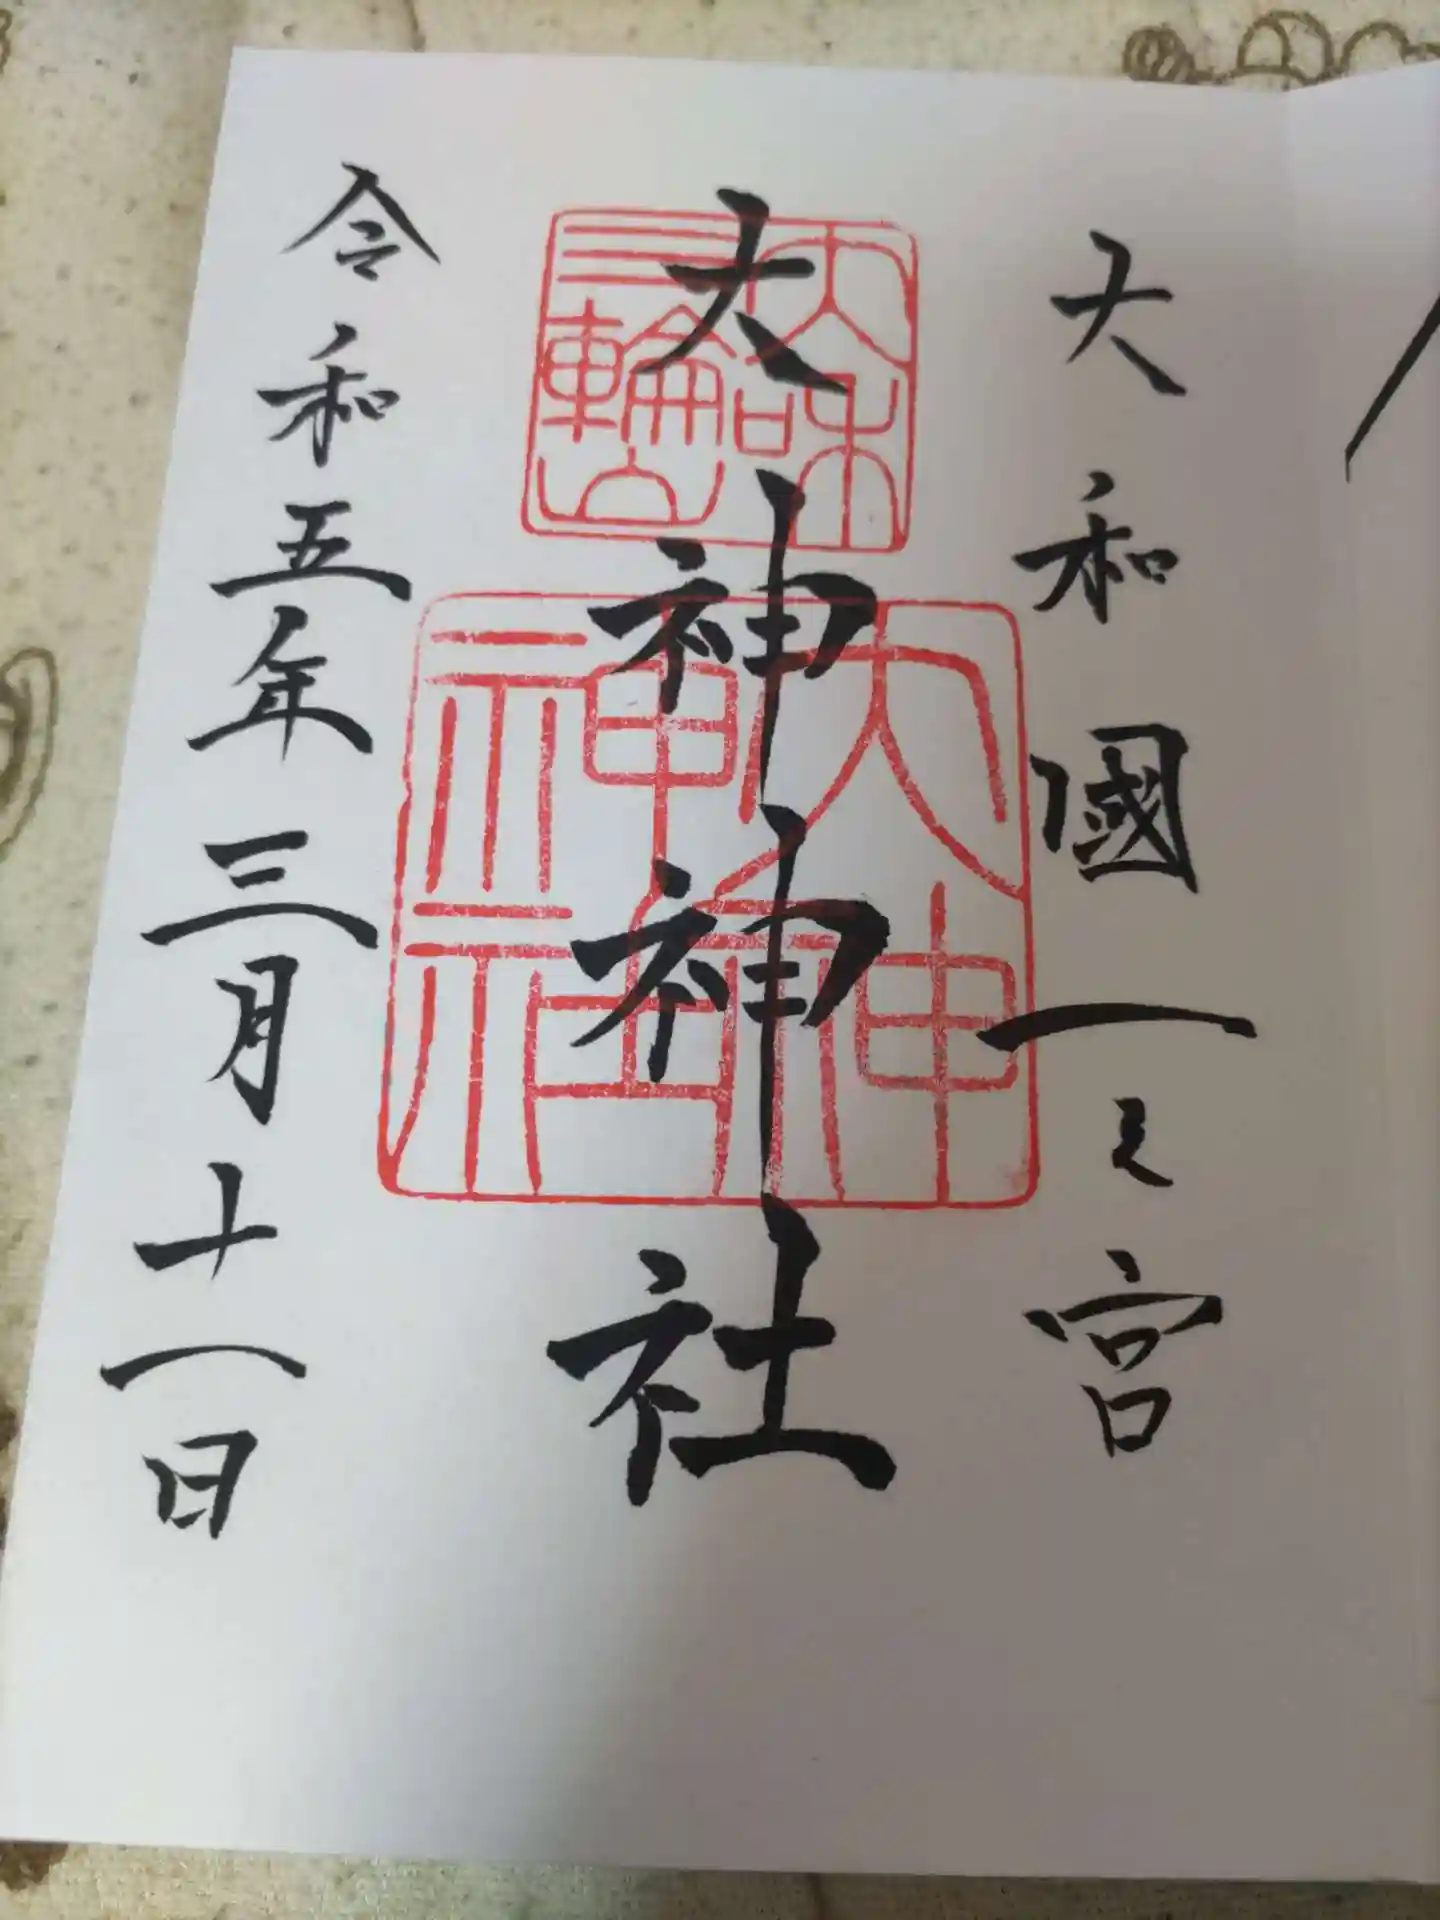 大和國一之宮
大和
三輪山
大神神社
大神
神社
令和五年三月十一日